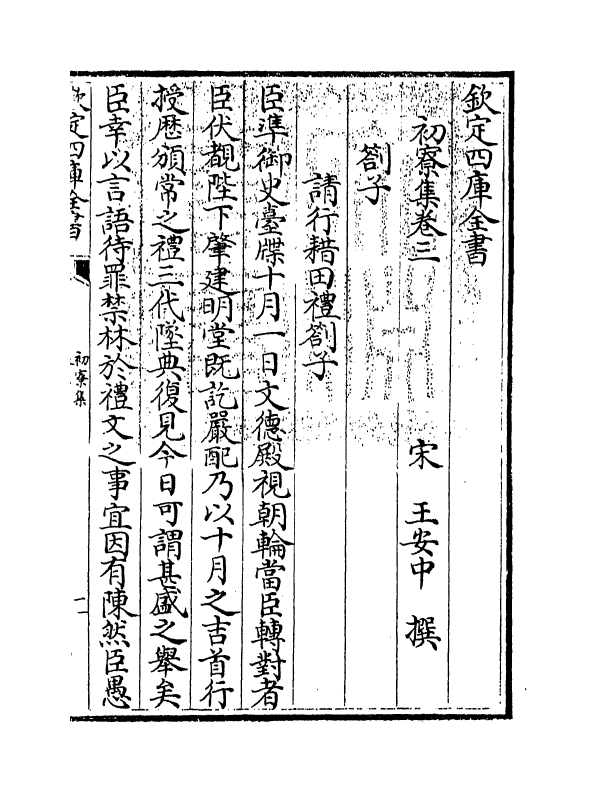 欽定四庫全書
初寮集卷三
宋 王安中 撰
劄子
請行耤田禮劄子
臣準御史臺牒十月一日文德殿視朝輪當臣轉對者
臣伏覩陛下肇建明堂既訖嚴配乃以十月之吉首行
授厯頒常之禮三代墜典復見今日可謂甚盛之舉矣
臣幸以言語待罪禁林於禮文之事宜因有陳然臣愚
欽定四庫全書
初寮集
一